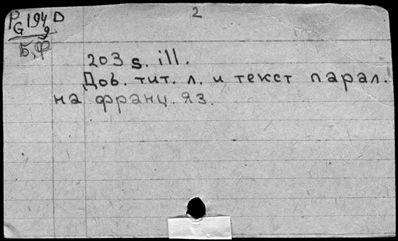 2
PG 194 D
9
Б,Ф
203 s. ill.
Доб. тит. л. и текст парал.
на франц. яз.